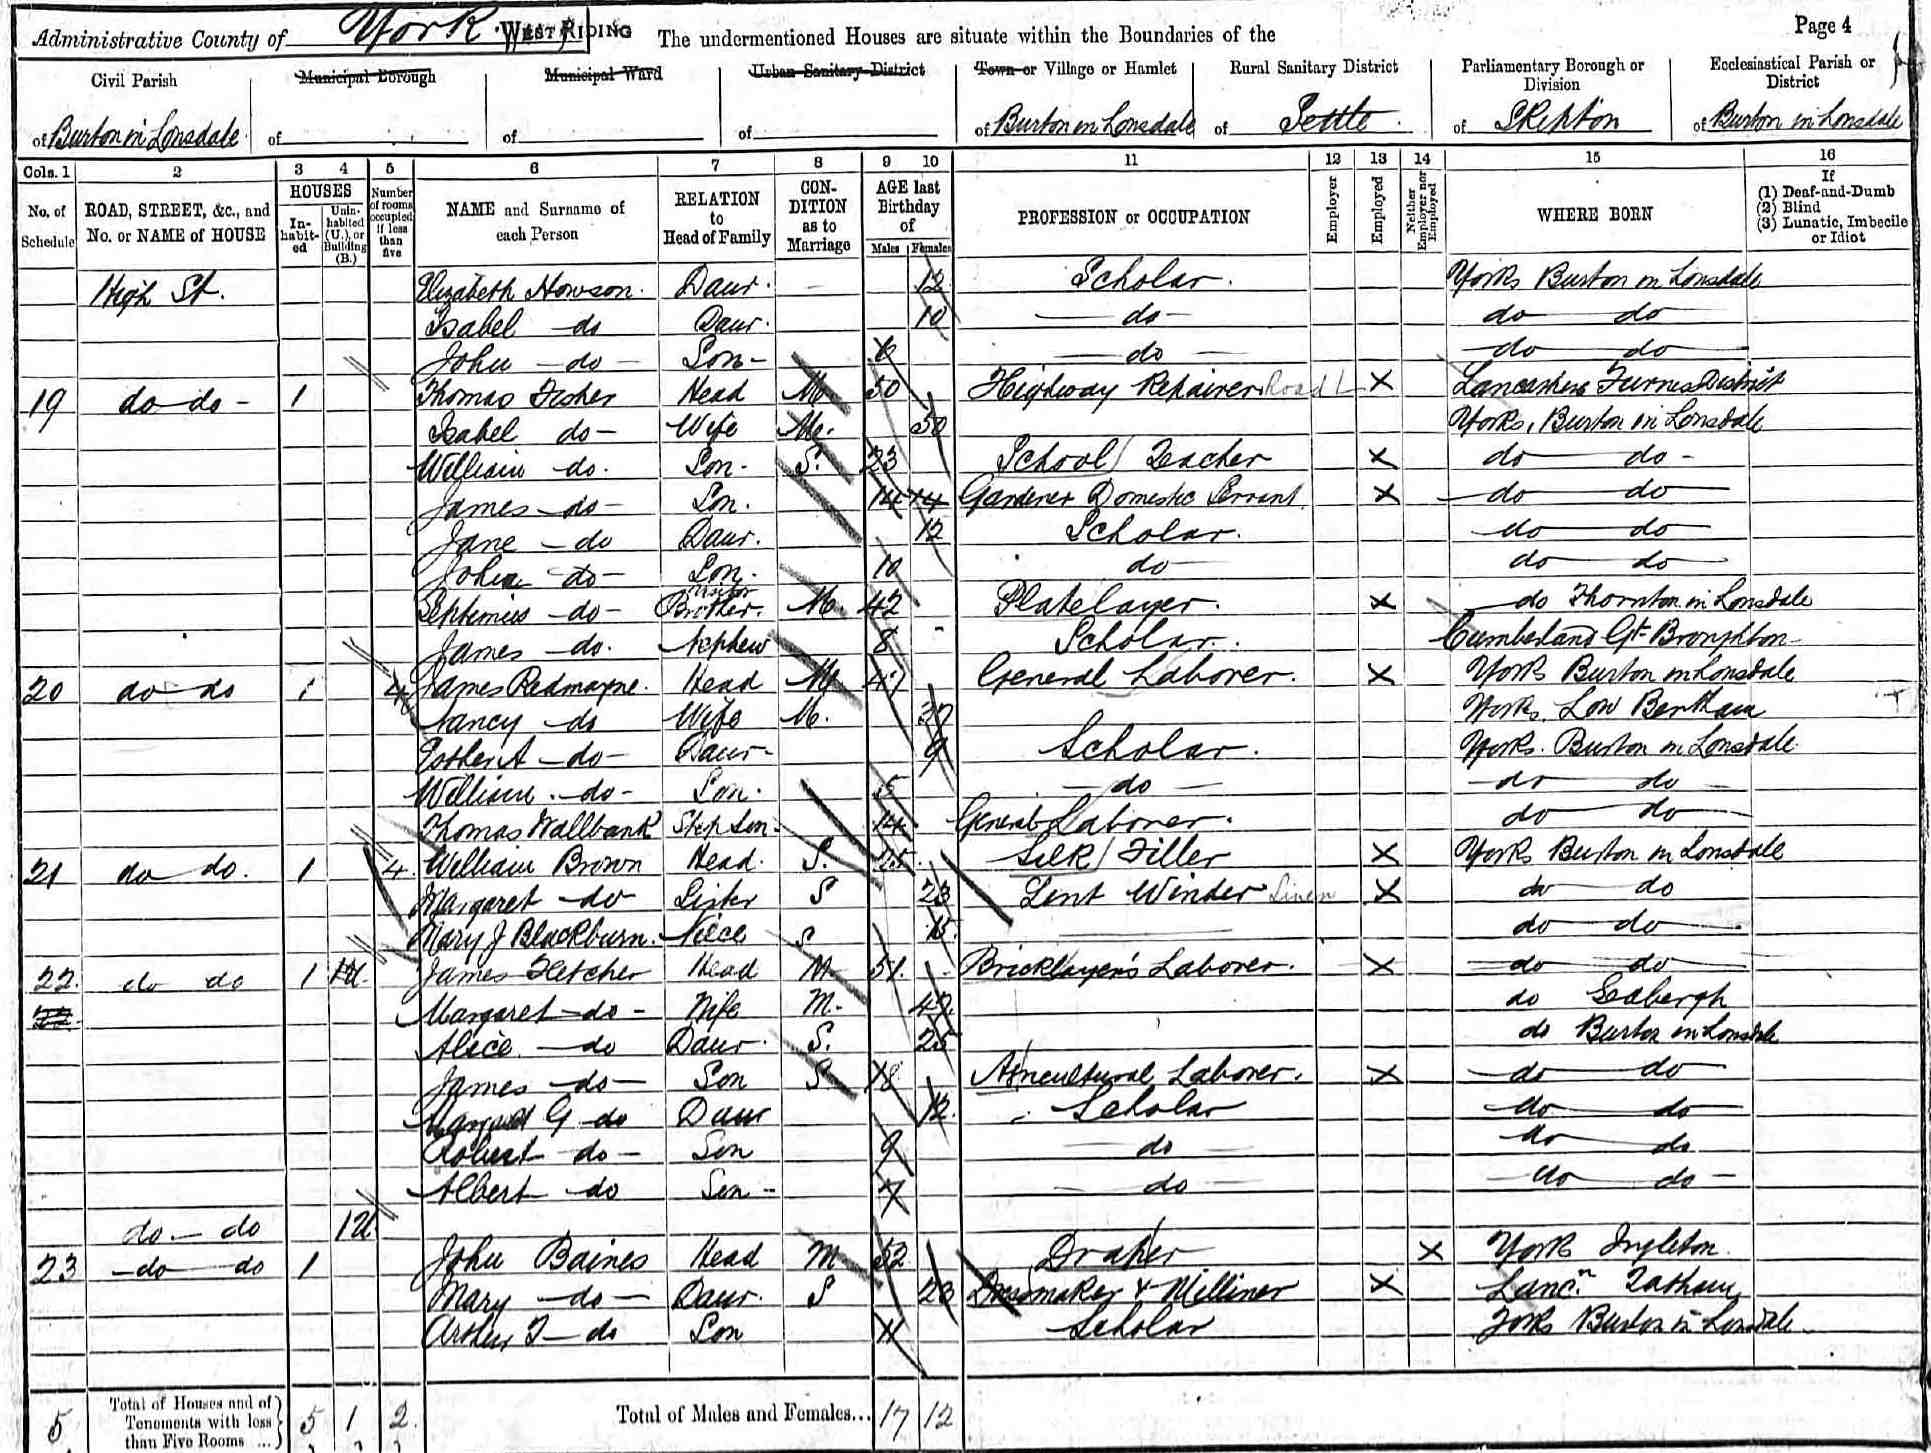 Administrative County of York. WEST RIDING The undermentioned Houses are situate within the Boundaries of the Page 4
Civil Parish Municipal Borough Municipal Ward Urban Sanitary District Town or Village or Hamlet Rural Sanitary District Parliamentary Borough or Division Ecclesiastical Parish or District
of Burton in Lonsdale of of of of Burton in Lonsdale of Settle of Skipton of Burton in Lonsdale
Cols. 1 2 3 4 5 6 7 8 9 10 11 12 13 14 15 16
No. of Schedule ROAD, STREET, &c., and No. or NAME of HOUSE HOUSES Inhabited Uninhabited (U.), or Building (B.) Number of rooms occupied if less than five NAME and Surname of each Person RELATION to Head of Family CONDITION as to Marriage AGE last Birthday of Males Females PROFESSION or OCCUPATION Employer Employed Neither Employer nor Employed WHERE BORN If (1) Deaf-and-Dumb (2) Blind (3) Lunatic, Imbecile or Idiot
High St. Elizabeth Howson Daur. 12 Scholar. Yorks Burton in Lonsdale
Isabel do Daur. 10 do do do
John do Son do do do
19 do do 1 Thomas Fisher Head M 50 Highway Repairer Road L X Lancashire Furness District
Isabel do Wife M. 50 Yorks, Burton in Lonsdale
William do. Son. S. 23 School Teacher X do do
James do Son. 14 14 Gardener Domestic Servant X do do
Jane do Daur. 12 Scholar. do do
John do Son. 10 do do do
Septimus do Visitor Brother. M. 42 Platelayer. X do Thornton in Lonsdale
James do. Nephew 8 Scholar. Cumberland Gt. Broughton
20 do do 1 4 James Redmayne. Head M 47 General Laborer. X York Burton in Lonsdale
Nancy do Wife M. 37 Yorks. Low Bentham
Esther A do Daur 9 Scholar. Yorks. Burton in Lonsdale
William do Son. 5 do do do
Thomas Wallbank Step Son 14 General Laborer. do do
21 do do. 1 4 William Brown Head. S. 25 Silk Filler X Yorks Burton in Lonsdale
Margaret do Sister S 23 Lint Winder Linen X do do
Mary J Blackburn. Niece S 15 do do
22 do do 1 James Fletcher Head M 51 Bricklayer's Laborer. X do do
22 Margaret do Wife M. do Sedbergh
Alice do Daur. S. 25 do Burton in Lonsdale
James do Son S. 18 Agricultural Laborer. X do do
G do Daur 12 Scholar do do
Robert do Son 9 do do do
Albert do Son 7 do do do
do do 1 U
23 do do 1 John Baines Head M 52 Draper X York Ingleton
Mary do Daur. S 23 Dressmaker & Milliner X Lancn. Tatham
Arthur T do Son 11 Scholar York Burton in Lonsdale
5 Total of Houses and of Tenements with less than Five Rooms ... 5 1 2 Total of Males and Females... 17 12